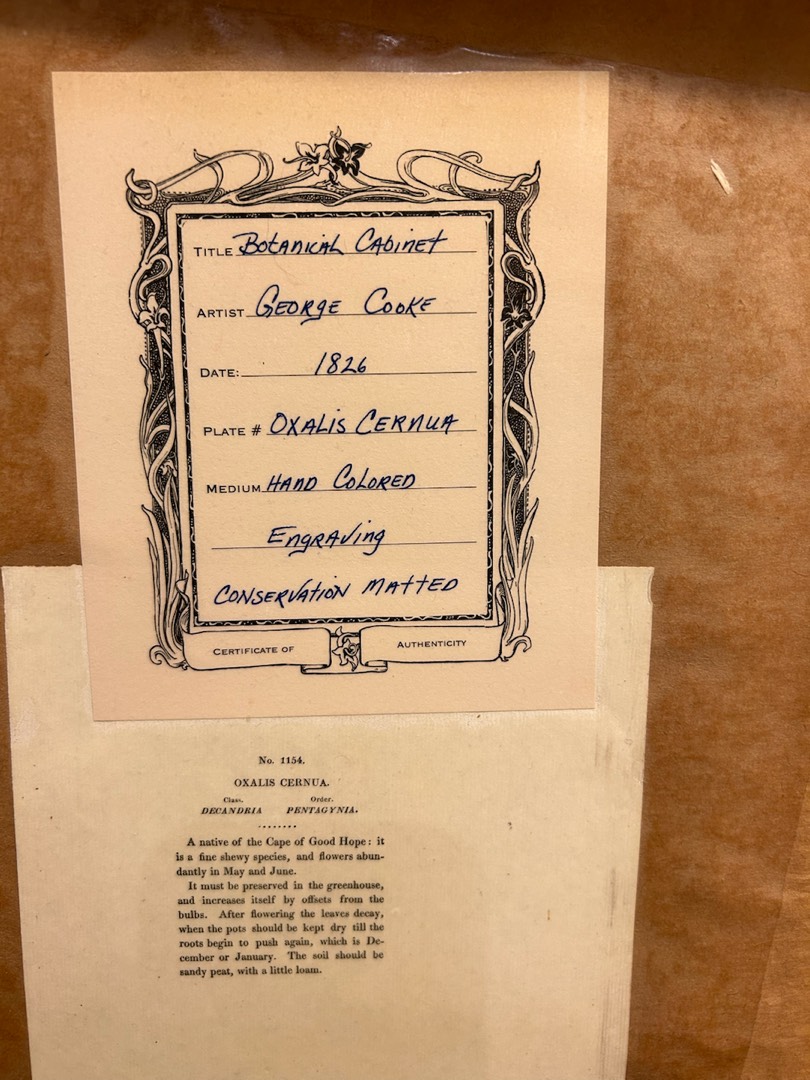 TITLE Botanical Cabinet
ARTIST George Cooke
DATE: 1826
PLATE # Oxalis Cernua
MEDIUM Hand Colored
Engraving
Conservation Matted
CERTIFICATE OF AUTHENTICITY
No. 1154.
OXALIS CERNUA.
Class. Order.
DECANDRIA PENTAGYNIA.
A native of the Cape of Good Hope: it
is a fine shewy species, and flowers abun-
dantly in May and June.
It must be preserved in the greenhouse,
and increases itself by offsets from the
bulbs. After flowering the leaves decay,
when the pots should be kept dry till the
roots begin to push again, which is De-
cember or January. The soil should be
sandy peat, with a little loam.